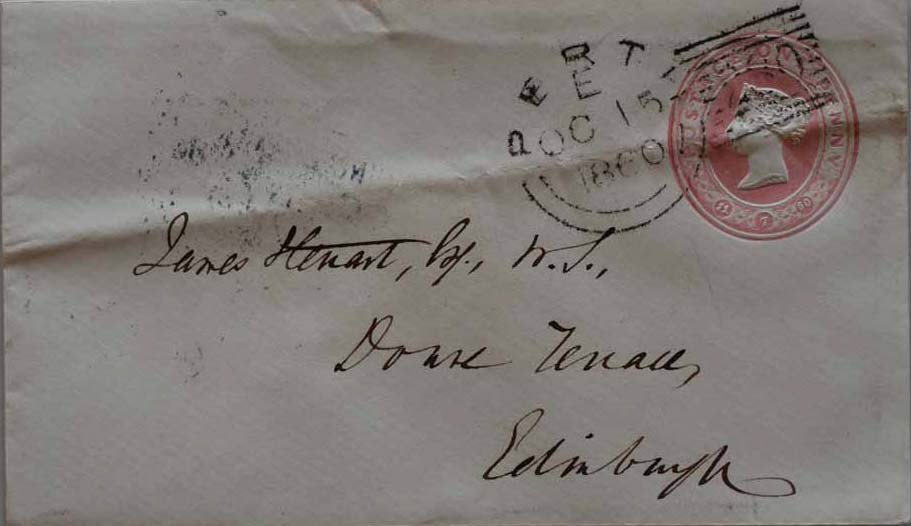 PERTH
E
OC 15
1860
POSTAGE ONE PENNY
11 7 60
James Stewart, Esq., W.S.,
Doune Terrace,
Edinburgh